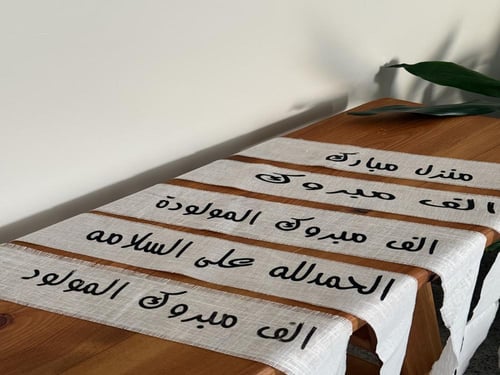 منزل مبارك
الف مبروك
الف مبروك المولودة
الحمدلله على السلامه
الف مبروك المولود